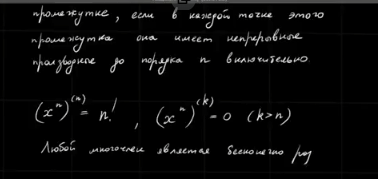 промежутке, если в каждой точке этого
промежутка она имеет непрерывные
производные до порядка n включительно.
(xⁿ)⁽ⁿ⁾ = n! , (xⁿ)⁽ᵏ⁾ = 0 (k>n)
Любой многочлен является бесконечно раз